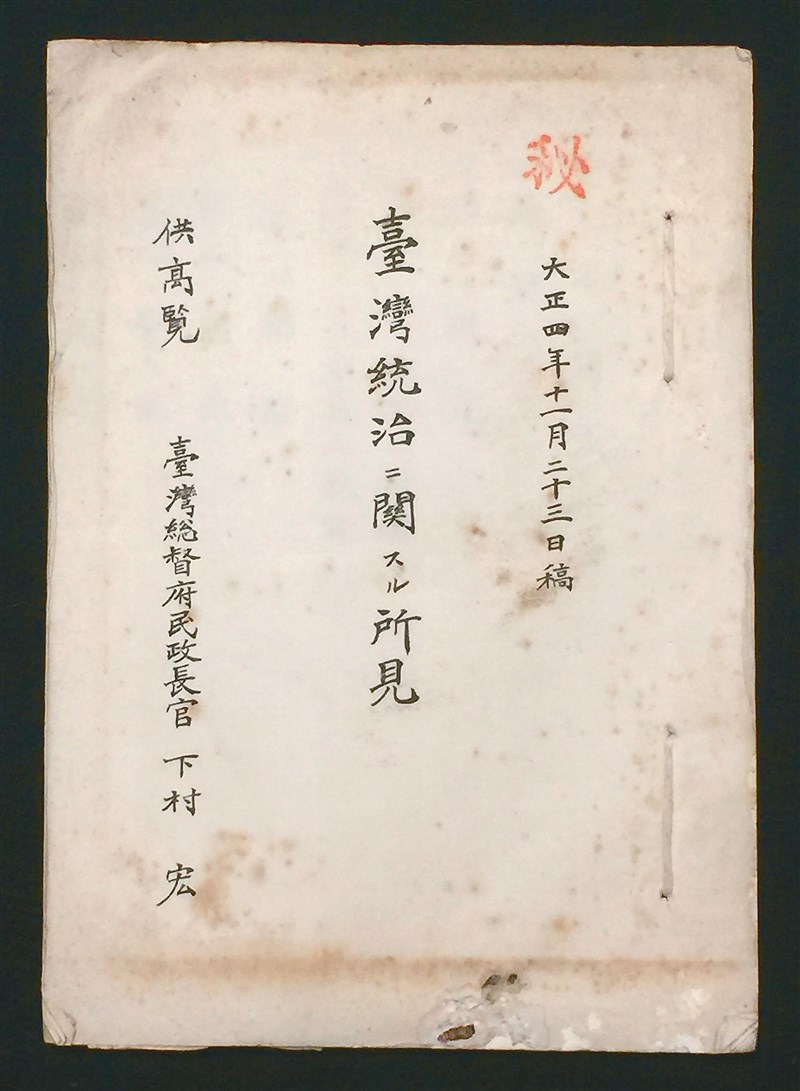 秘
大正四年十一月二十三日稿
臺灣統治ニ関スル所見
供高覧　臺灣総督府民政長官　下村　宏